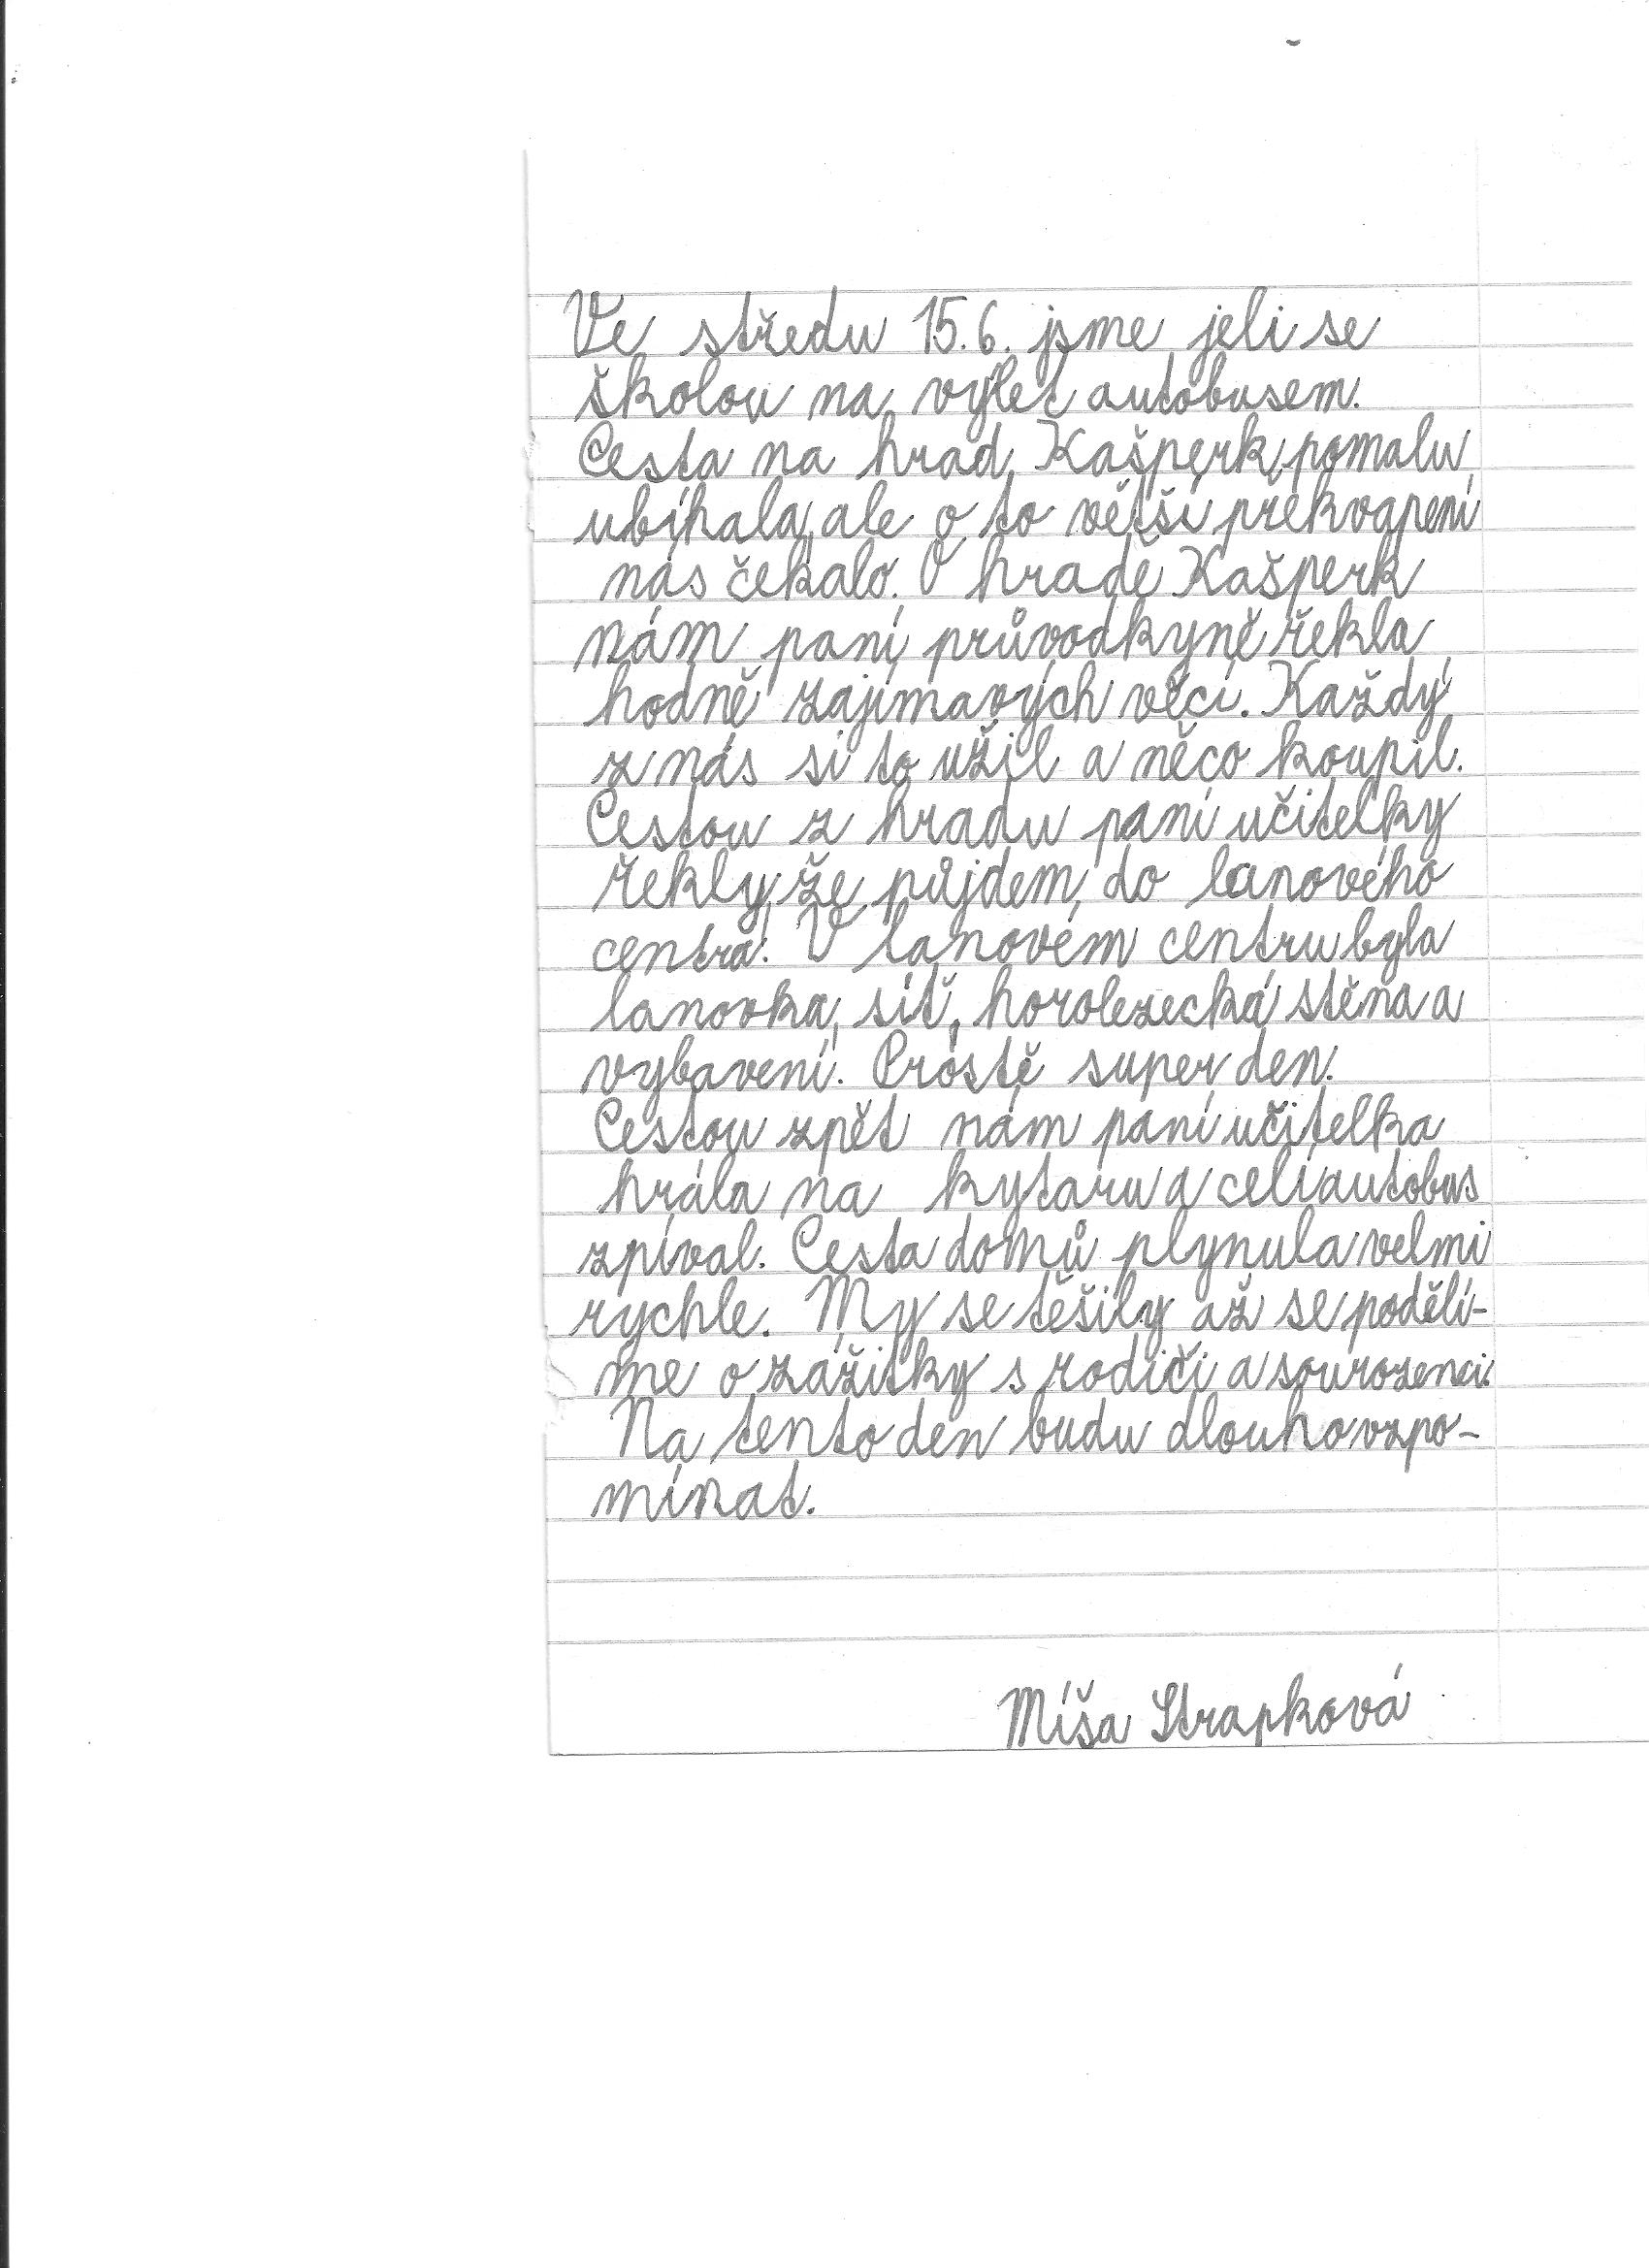 Ve středu 15.6. jsme jeli se
školou na výlet autobusem.
Cesta na hrad Kašperk pomalu
ubíhala, ale o to větší překvapení
nás čekalo. O hradě Kašperk
nám paní průvodkyně řekla
hodně zajímavých věcí. Každý
z nás si to užil a něco koupil.
Cestou z hradu paní učitelky
řekly, že půjdem do lanového
centra. V lanovém centru byla
lanovka, síť, horolezecká stěna a
vybavení. Prostě super den.
Cestou zpět nám paní učitelka
hrála na kytaru a celí autobus
zpíval. Cesta domů plynula velmi
rychle. My se těšily až se podělí-
me o zážitky s rodiči a sourozenci.
Na tento den budu dlouho vzpo-
mínat.
Míša Strapková